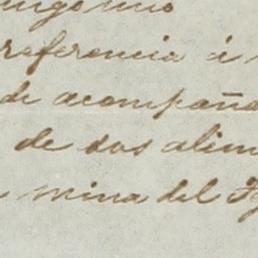 referencia á
de acompaña
de dos alim
mina del